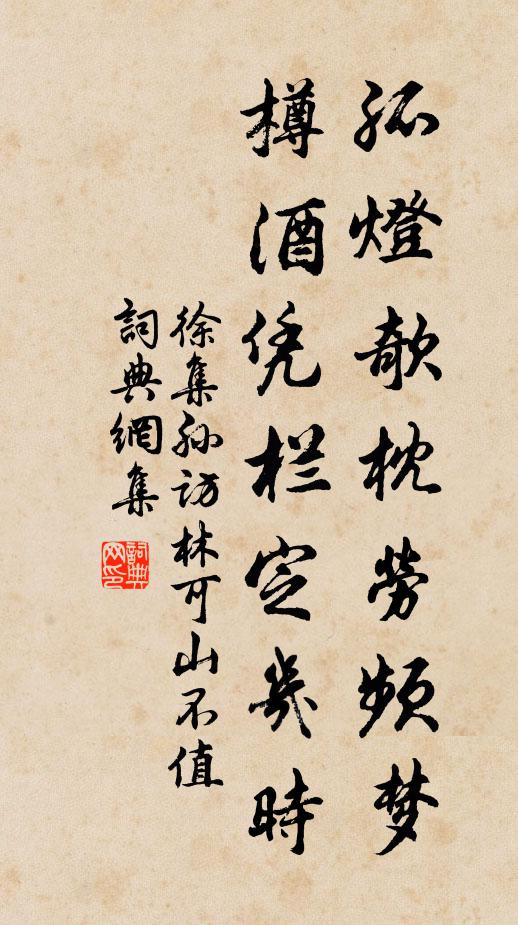 孤燈欹枕勞頻梦
樽酒凭栏定幾時
徐集孙访林可山不值
詞典網集
詞典网印